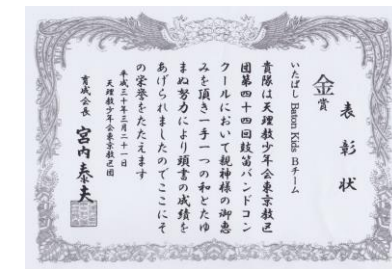 表彰状
金賞
いたばし Baton Kids Bチーム
貴隊は天理教少年会東京教区
団第四十四回鼓笛バンドコン
クールにおいて親神様の御恵
みを頂き一手一つの和とたゆ
まぬ努力により頭書の成績を
あげられましたのでここにそ
の栄誉をたたえます
平成三十年三月二十一日
天理教少年会東京教区団
育成会長 宮内泰夫